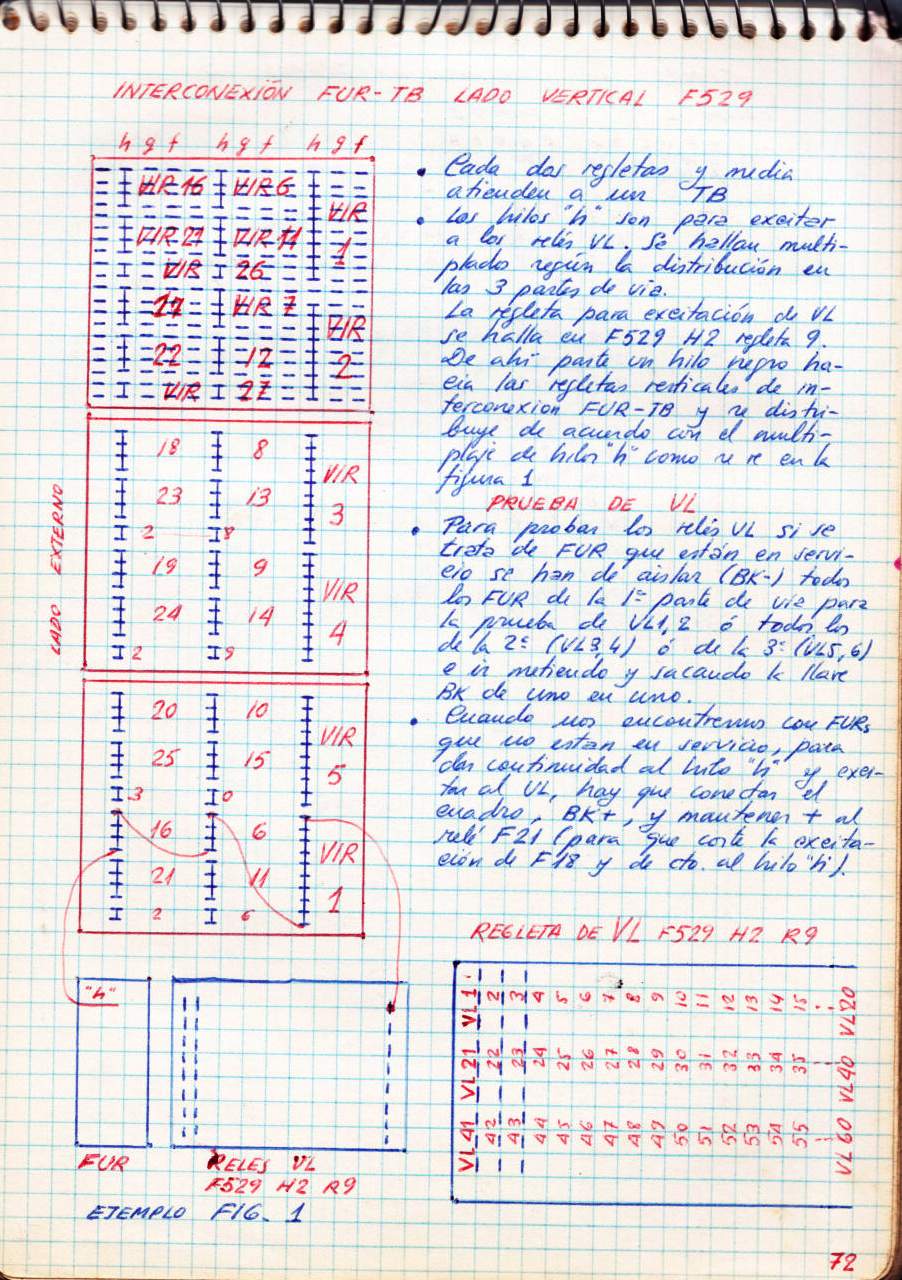 INTERCONEXIÓN FUR-TB LADO VERTICAL F529
h g f h g f h g f
VIR 16 VIR 6
VIR
VIR 21 VIR 11 1
VIR 26
17 VIR 7
VIR
22 12 2
VIR 27
LADO EXTERNO
18 8
VIR
23 13
3
2 8
19 9
VIR
24 14
4
2 9
20 10
VIR
25 15
5
3 0
16 6
VIR
21 11
1
2 6
• Cada dos regletas y media
atienden a un TB
• Los hilos "h" son para excitar
a los relés VL. Se hallan multi-
plados según la distribución en
las 3 partes de vía.
La regleta para excitación de VL
se halla en F529 H2 regleta 9.
De ahí parte un hilo negro ha-
cia las regletas verticales de in-
terconexion FUR-TB y se distri-
buye de acuerdo con el multi-
plaje de hilos "h" como se ve en la
figura 1
PRUEBA DE VL
• Para probar los relés VL si se
trata de FUR que están en servi-
cio se han de aislar (BK-) todos
los FUR de la 1ª parte de vía para
la prueba de VL1,2 ó todos los
de la 2ª (VL3,4) ó de la 3ª (VL5,6)
e ir metiendo y sacando la llave
BK de uno en uno.
• Cuando nos encontremos con FURs
que no estan en servicio, para
dar continuidad al hilo "h" y exci-
tar al VL, hay que conectar el
cuadro, BK+, y mantener + al
relé F21 (para que corte la excita-
ción de F18 y de cto. al hilo "h").
"h"
FUR
RELES VL
F529 H2 R9
EJEMPLO FIG. 1
REGLETA DE VL F529 H2 R9
VL1 2 3 4 5 6 7 8 9 10 11 12 13 14 15 ... VL20
VL21 22 23 24 25 26 27 28 29 30 31 32 33 34 35 ... VL40
VL41 42 43 44 45 46 47 48 49 50 51 52 53 54 55 ... VL60
72